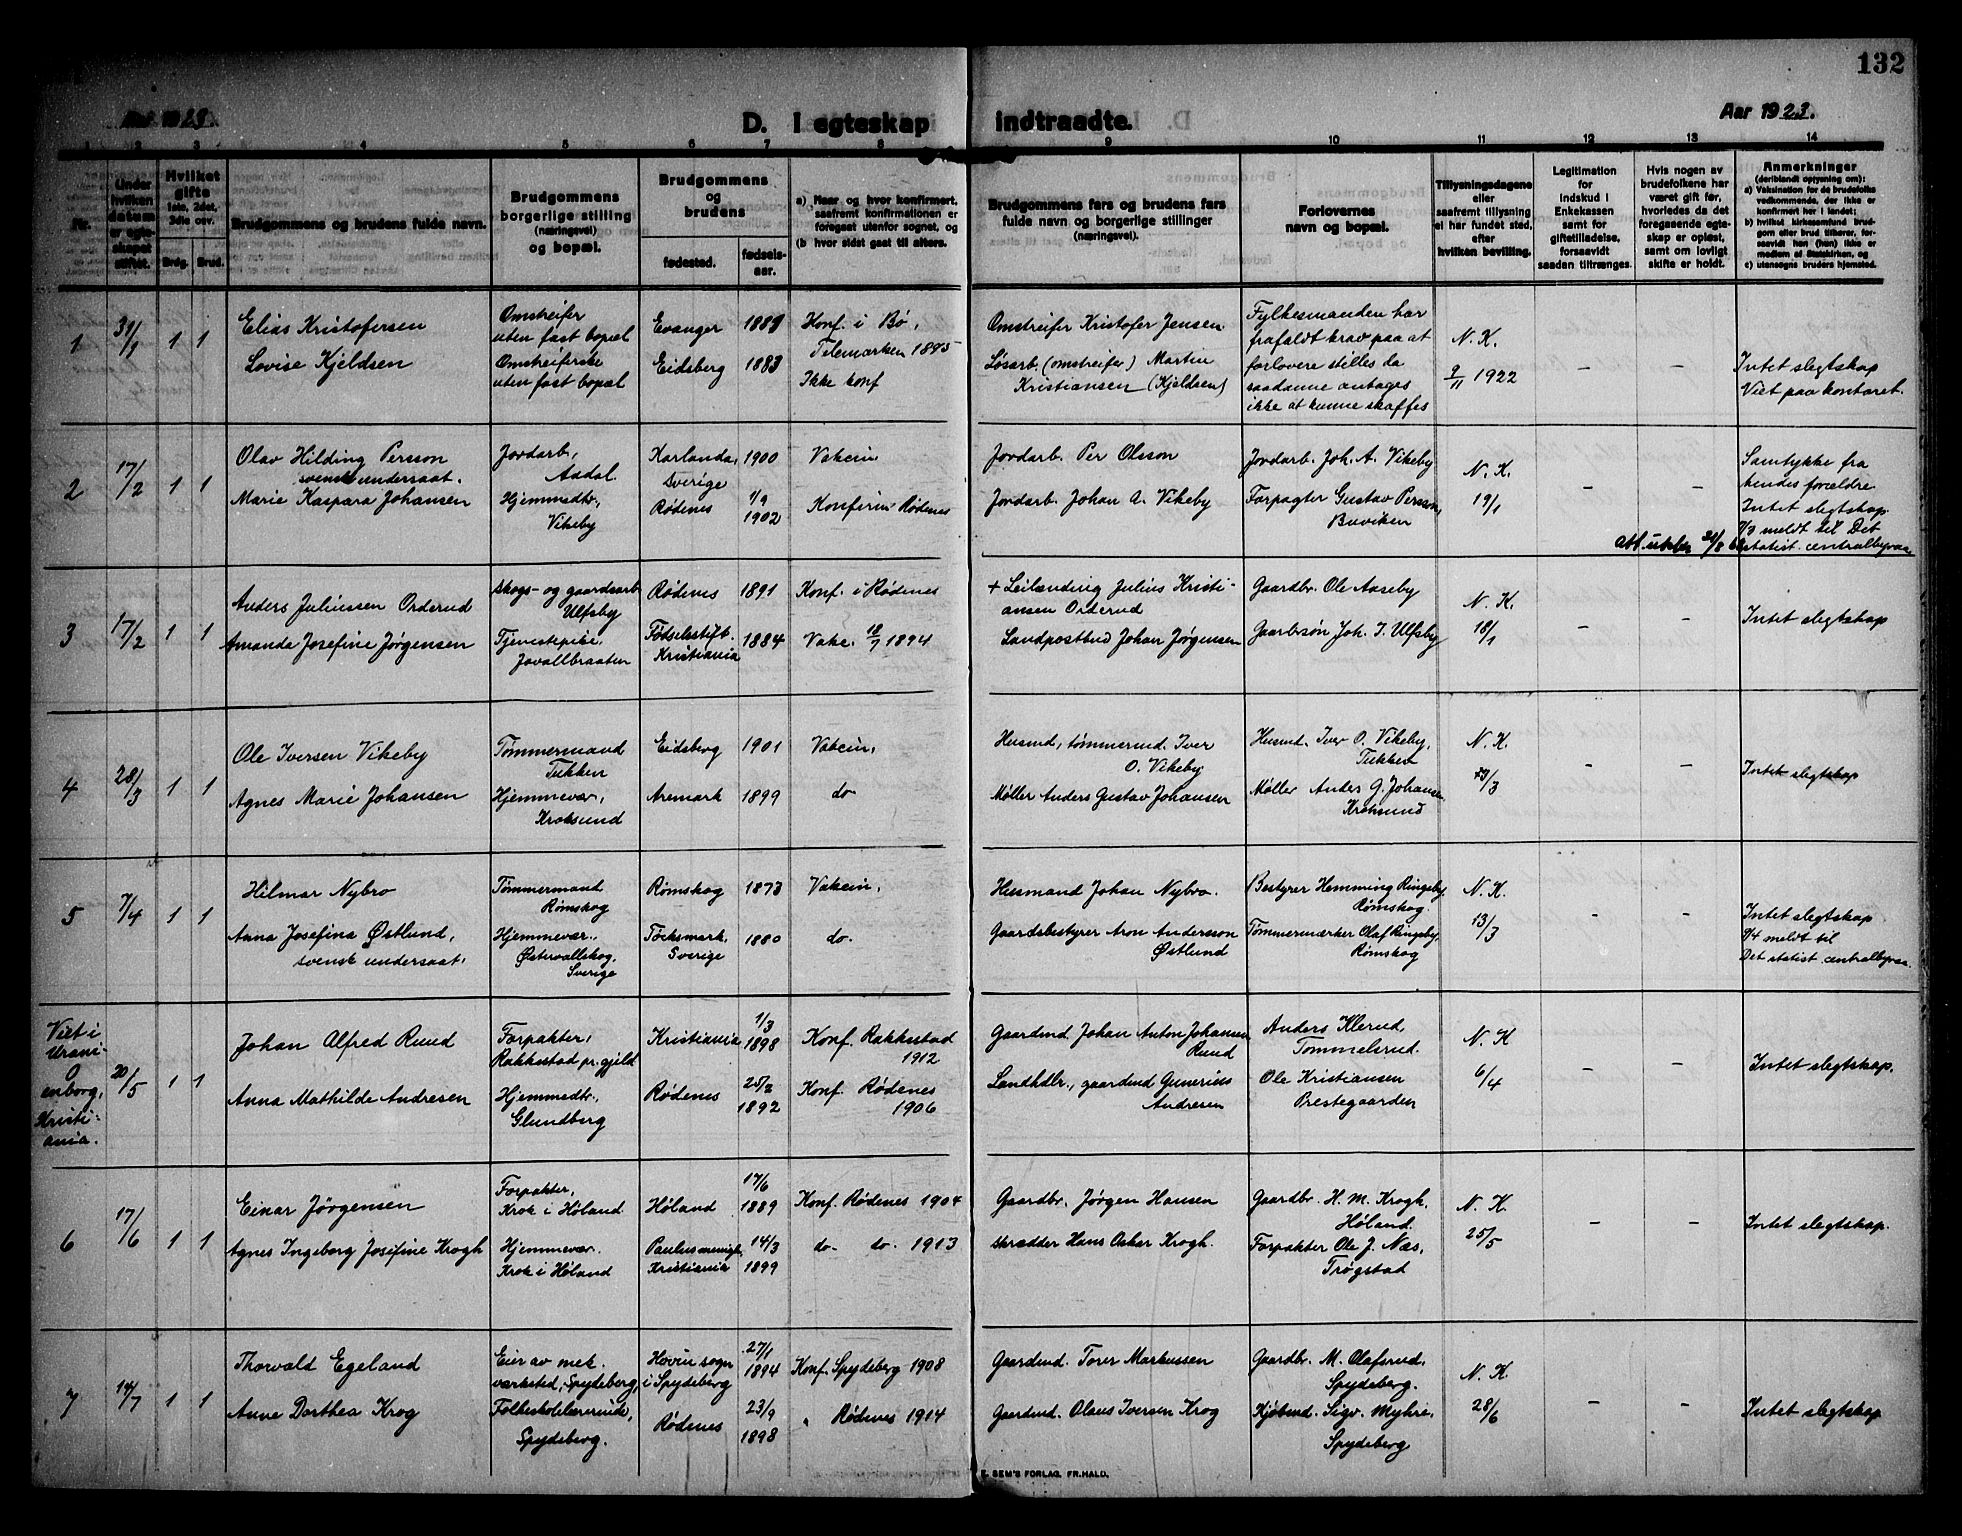 132
Aar 1923.
D. I egteskap indtraadte.
Aar 1923.
1 2 3 4 5 6 7 8 9 10 11 12 13 14
Nr.
Under hvilken datum er egteskapet stiftet.
Hvilket gifte
1ste, 2det, 3die osv.
Brdg. Brud.
Brudgommens og brudens fulde navn.
Brudgommens borgerlige stilling
(næringsvei)
og bopæl.
Brudgommens og brudens
fødested.
fødselsaar.
a) Naar og hvor konfirmert,
saafremt konfirmationen er
foregaat utenfor sognet, og
(b hvor sidst gaat til alters.
Brudgommens fars og brudens fars
fulde navn og borgerlige stillinger
(næringsvei).
Forlovernes
navn og bopæl.
Tillysningsdagene
eller
saafremt tillysning
ei har fundet sted,
efter
hvilken bevilling.
Legitimation
for
Indskud i
Enkekassen
samt for
giftetilladelse,
forsaavidt
saadan tiltrænges.
Hvis nogen av
brudefolkene har
været gift før,
hvorledes da det
foregaaende egteskap er opløst,
samt om lovligt
skifte er holdt.
Anmerkninger
(deriblandt oplysning om):
a) Vaksination for de brudefolks
vedkommende, der ikke er
konfirmert her i landet;
b) hvilket kirkesamfund brudgom eller brud tilhører, forsaavidt han (hun) ikke er
medlem af Statskirken, og
c) utensogns bruders hjemsted.
1
31/1
1 1
Elias Kristofersen
Lovise Kjeldsen
Omstreifer
uten fast bopæl
Omstreiferske
uten fast bopæl
Evanger
Eidsberg
1889
1883
Konf. i Bø,
Telemarken 1895
Ikke konf
Omstreifer Kristofer Jensen
Løsarb (omstreifer) Martin
Kristiansen (Kjeldsen)
Fylkesmanden har
frafaldt krav paa at
forlovere stilles da
saadanne antages
ikke at kunne skaffes
N. K.
9/11 1922
-
-
Intet slegtskap
Viet paa kontoret.
2
17/2
1 1
Olav Hilding Persson
svensk undersaat.
Marie Kaspara Johansen
Jordarb,
Aadal.
Hjemmedtr,
Vikeby
Karlanda,
Sverige
Rødenes
1900
1/9
1902
Vakcin
Konferin Rødenes
Jordarb. Per Olsson
Jordarb. Johan A. Vikeby
Jordarb. Joh. A. Vikeby
Forpagter Gustav Persson,
Buviken
N. K.
19/1
-
-
Samtykke fra
hendes forældre
Intet slegtskap.
meldt til Det
statist. centralbyraa
3
17/2
1 1
Anders Juliussen Orderud
Amanda Josefine Jørgensen
Skogs- og gaardsarb
Ulfsby
Tjenestepike,
Jovallbraaten
Rødenes
Fødselsstift.
Kristiania
1891
1884
Konf. i Rødenes
Vakc. 18/7 1894
+ Leilænding Julius Kristiansen Orderud
Landpostbud Johan Jørgensen
Gaardbr. Ole Aaseby
Gaardsøn Joh. J. Ulfsby
N. K.
18/1
-
-
Intet slegtskap
4
28/3
1 1
Ole Iversen Vikeby
Agnes Marie Johansen
Tømmermand
Tukken
Hjemmevær,
Kroksund
Eidsberg
Aremark
1901
1899
Vakcin,
do
Husmd, tømmermd. Iver
O. Vikeby
Møller Anders Gustav Johansen
Husmd. Iver O. Vikeby,
Tukken
Møller Anders G. Johansen
Kroksund
N. K.
-
-
Intet slegtskap
5
7/4
1 1
Hilmar Nybro
Anna Josefina Østlund,
svensk undersaat,
Tømmermand
Rømskog
Hjemmevær.,
Østervallskog,
Sverige
Rømskog
Töcksmark,
Sverige
1873
1880
Vakcin,
do.
Husmand Johan Nybro.
Gaardsbestyrer Aron Andersson
Østlund
Bestyrer Hemming Ringsby
Rømskog.
Tømmermærker Olaf Ringsby,
Rømskog
N. K.
13/3
-
-
Intet slegtskap.
9/4 meldt til
Det statist. centralbyraa.
Viet i
Uranienborg,
Kristiania.
20/5
1 1
Johan Alfred Ruud
Anna Mathilde Andresen
Forpakter,
Rakkestad pr.gjeld
Hjemmedtr.,
Glundberg
Kristiania
Rødenes
1/3
1898
25/2
1892
Konf. Rakkestad
1912
Konf. Rødenes
1906
Gaardmd Johan Anton Johansen
Ruud
Landhdlr., gaardmd Gunerius
Andresen
Anders Klerud,
Tommelsrud.
Ole Kristiansen
Prestegaarden
N. K
6/4
-
-
Intet slegtskap.
6
17/6
1 1
Einar Jörgensen
Agnes Ingeborg Josefine Krogh
Forpakter,
Krok i Høland
Hjemmevær.
Krok i Høland
Høland
Paulus menigh.
Kristiania
17/6
1889
14/3
1899
Konf. Rødenes 1904
do. do. 1913
Gaardbr. Jørgen Hansen
Skrædder Hans Oskar Krogh.
Gaardbr. H. M. Krogh,
Høland.
Forpakter Ole J. Næs,
Trøgstad
N. K.
25/5
-
-
Intet slegtskap.
7
14/7
1 1
Thorvald Egeland
Anne Dorthea Krog
Eier av mek.
verksted, Spydeberg,
Folkeskolelærerinde,
Spydeberg.
Hovin sogn
i Spydeberg
Rødenes
27/1
1894
23/9
1898
Konf. Spydeberg 1908
" Rødenes 1914
Gaardmd. Torer Markussen
Gaardmd. Olaus Iversen Krog
Gaardbr. M. Olafsrud,
Spydeberg.
Kjøbmd. Sigv. Myhre,
Spydeberg
N. K.
28/6
-
-
Intet slegtskap
E. SEM'S FORLAG, FR.HALD.